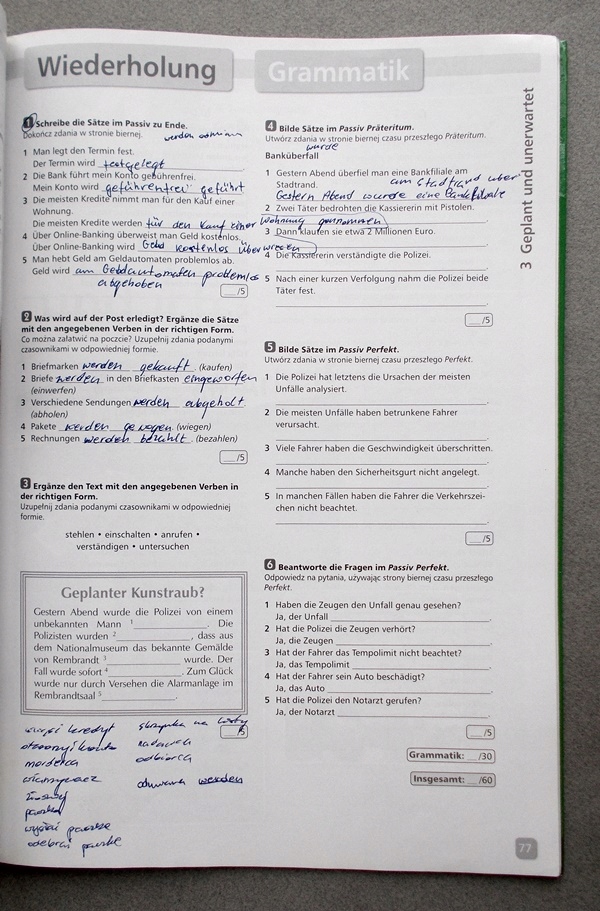 Wiederholung Grammatik
1 Schreibe die Sätze im Passiv zu Ende.
Dokończ zdania w stronie biernej.
werden
1 Man legt den Termin fest.
Der Termin wird festgelegt
2 Die Bank führt mein Konto gebührenfrei.
Mein Konto wird geführenfrei geführt
3 Die meisten Kredite nimmt man für den Kauf einer
Wohnung.
Die meisten Kredite werden für den Kauf einer Wohnung genommen
4 Über Online-Banking überweist man Geld kostenlos.
Über Online-Banking wird Geld kostenlos überwiesen
5 Man hebt Geld am Geldautomaten problemlos ab.
Geld wird am Geldautomaten problemlos
abgehoben
/5
2 Was wird auf der Post erledigt? Ergänze die Sätze
mit den angegebenen Verben in der richtigen Form.
Co można załatwić na poczcie? Uzupełnij zdania podanymi
czasownikami w odpowiedniej formie.
1 Briefmarken werden gekauft. (kaufen)
2 Briefe werden in den Briefkasten eingeworfen
(einwerfen)
3 Verschiedene Sendungen werden abgeholt.
(abholen)
4 Pakete werden gewogen. (wiegen)
5 Rechnungen werden bezahlt. (bezahlen)
/5
3 Ergänze den Text mit den angegebenen Verben in
der richtigen Form.
Uzupełnij zdania podanymi czasownikami w odpowiedniej
formie.
stehlen • einschalten • anrufen •
verständigen • untersuchen
Geplanter Kunstraub?
Gestern Abend wurde die Polizei von einem
unbekannten Mann 1. Die
Polizisten wurden 2, dass aus
dem Nationalmuseum das bekannte Gemälde
von Rembrandt 3 wurde. Der
Fall wurde sofort 4. Zum Glück
wurde nur durch Versehen die Alarmanlage im
Rembrandtsaal 5.
/5
kredyt skrzynka na listy
nadawca
morderca odbiorca
werden
odebrać paczkę
4 Bilde Sätze im Passiv Präteritum.
Utwórz zdania w stronie biernej czasu przeszłego Präteritum.
wurde
Banküberfall
1 Gestern Abend überfiel man eine Bankfiliale am
Stadtrand. am Stadtrand über
Gestern Abend wurde eine Bankfiliale
2 Zwei Täter bedrohten die Kassiererin mit Pistolen.
3 Dann klauten sie etwa 2 Millionen Euro.
4 Die Kassiererin verständigte die Polizei.
5 Nach einer kurzen Verfolgung nahm die Polizei beide
Täter fest.
/5
5 Bilde Sätze im Passiv Perfekt.
Utwórz zdania w stronie biernej czasu przeszłego Perfekt.
1 Die Polizei hat letztens die Ursachen der meisten
Unfälle analysiert.
2 Die meisten Unfälle haben betrunkene Fahrer
verursacht.
3 Viele Fahrer haben die Geschwindigkeit überschritten.
4 Manche haben den Sicherheitsgurt nicht angelegt.
5 In manchen Fällen haben die Fahrer die Verkehrszei-
chen nicht beachtet.
/5
6 Beantworte die Fragen im Passiv Perfekt.
Odpowiedz na pytania, używając strony biernej czasu przeszłego
Perfekt.
1 Haben die Zeugen den Unfall genau gesehen?
Ja, der Unfall
2 Hat die Polizei die Zeugen verhört?
Ja, die Zeugen
3 Hat der Fahrer das Tempolimit nicht beachtet?
Ja, das Tempolimit
4 Hat der Fahrer sein Auto beschädigt?
Ja, das Auto
5 Hat die Polizei den Notarzt gerufen?
Ja, der Notarzt
/5
Grammatik: /30
Insgesamt: /60
3 Geplant und unerwartet
77